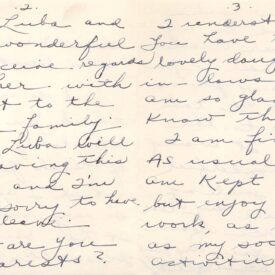 .2.
Luba and
wonderful
receive regards
her. with in-laws
t to the
family.
Luba will
leaving this
and I'm
sorry to have
leave.
are you
arests?
.3.
I understa
You have
lovely daug
am so glad
Know th
I am fin
As usual
am Kept
but enjoy
work, as
as my so
activities